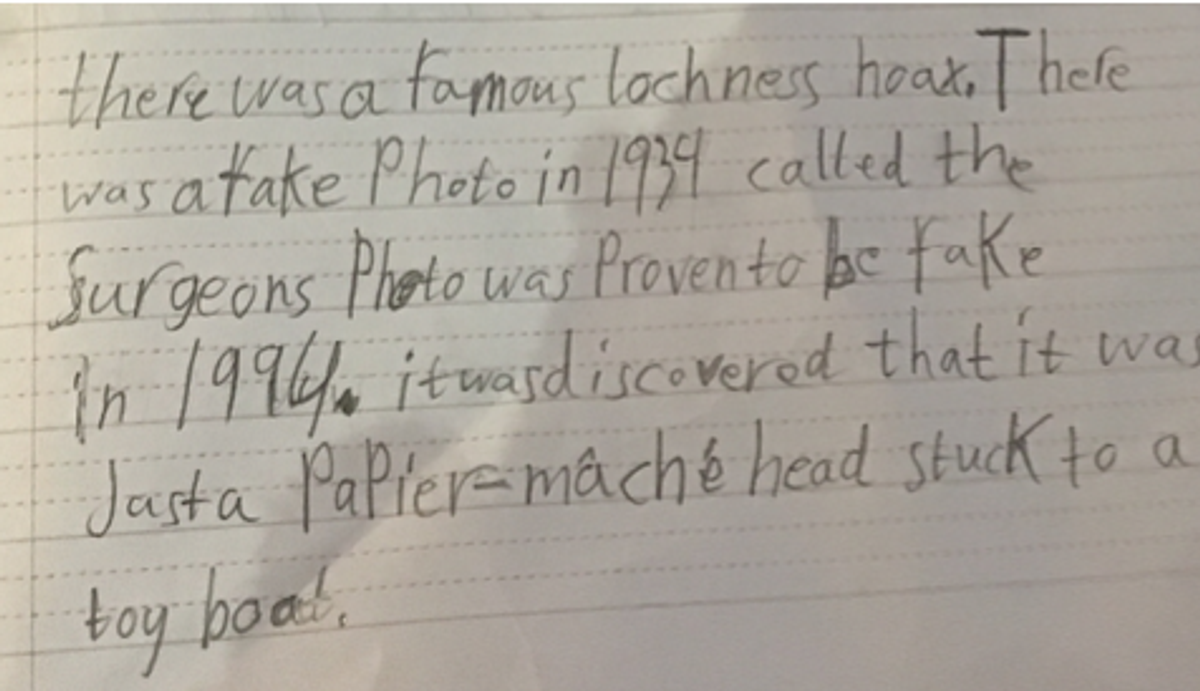 there was a famous lochness hoax. There
was a fake Photo in 1934 called the
Surgeons Photo was Proven to be fake
in 1994. it was discovered that it was
Just a PaPier-mâché head stuck to a
toy boat.